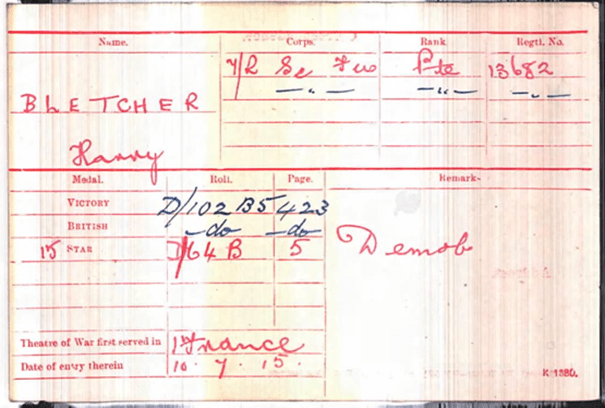 Name. Corps. Rank Regtl. No.
7/R Sc Fus Pte 13682
—"— —"— —"—
BLETCHER
Harry
Medal. Roll. Page. Remarks
VICTORY D/102 B5 423
BRITISH —do— —do—
15 STAR D/64 B 5
Demob
Theatre of War first served in 1 France
Date of entry therein 10. 7. 15.
K 1380.